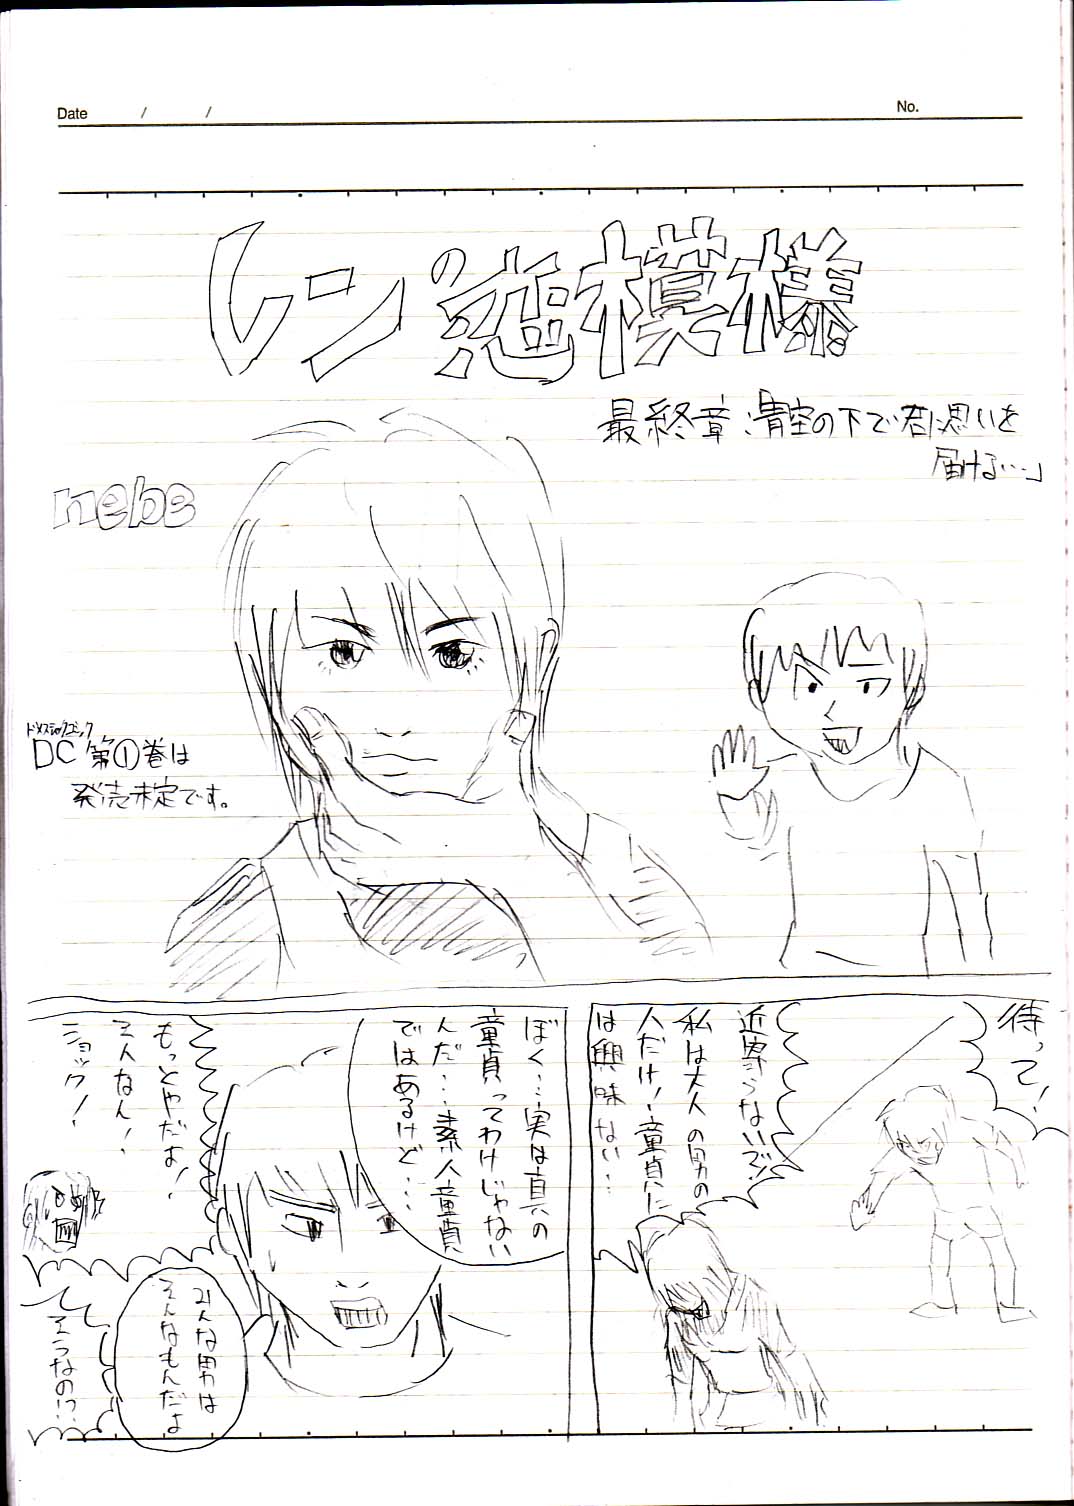 Date / /
No.
レンの恋模様
最終章:青空の下で君に思いを
届ける…」
nebe
ドメスティックコミック
DC 第①巻は
発売未定です。
待って!
近寄らないで!
私は大人の男の
人だけ!童貞に
は興味ない…
ぼく…実は真の
童貞ってわけじゃない
んだ…素人童貞
ではあるけど…
もっとやだよ!
そんなん!
ショック!
みんな男は
そんなもんだよ
そうなの!?